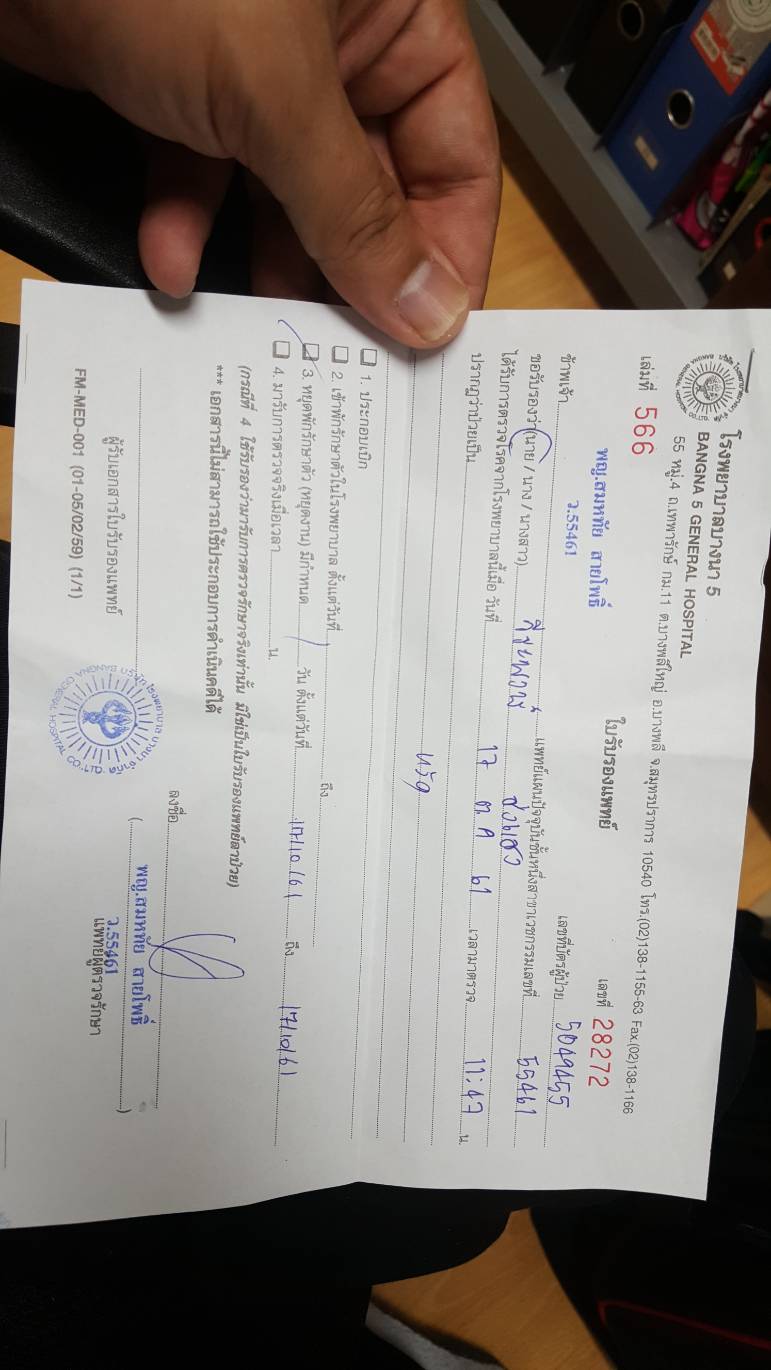 โรงพยาบาลบางนา 5
BANGNA 5 GENERAL HOSPITAL
55 หมู่.4 ถ.เทพารักษ์ กม.11 ต.บางพลีใหญ่ อ.บางพลี จ.สมุทรปราการ 10540 โทร.(02)138-1155-63 Fax.(02)138-1166
เล่มที่ 566
ใบรับรองแพทย์
เลขที่ 28272
พญ.สมหทัย สายโพธิ์
ว.55461
เลขที่บัตรผู้ป่วย 5049455
ข้าพเจ้า แพทย์แผนปัจจุบันชั้นหนึ่งสาขาเวชกรรมเลขที่ 55461
ขอรับรองว่า (นาย / นาง / นางสาว)
ได้รับการตรวจโรคจากโรงพยาบาลนี้เมื่อ วันที่ 17 ต.ค 61 เวลามาตรวจ 11:47 น.
ปรากฏว่าป่วยเป็น
หวัด
1. ประกอบเบิก
2. เข้าพักรักษาตัวในโรงพยาบาล ตั้งแต่วันที่ ถึง
3. หยุดพักรักษาตัว (หยุดงาน) มีกำหนด 1 วัน ตั้งแต่วันที่ 17/10/61 ถึง 17/10/61
4. มารับการตรวจจริงเมื่อเวลา น.
(กรณีที่ 4 ใช้รับรองว่ามารับการตรวจรักษาจริงเท่านั้น มิใช่เป็นใบรับรองแพทย์ลาป่วย)
*** เอกสารนี้ไม่สามารถใช้ประกอบการดำเนินคดีได้
ลงชื่อ
(พญ.สมหทัย สายโพธิ์)
ว.55461
แพทย์ผู้ตรวจรักษา
ผู้รับเอกสารใบรับรองแพทย์
FM-MED-001 (01-05/02/59) (1/1)
บริษัท โรงพยาบาล บางนา จำกัด
BANGNA GENERAL HOSPITAL CO.,LTD.